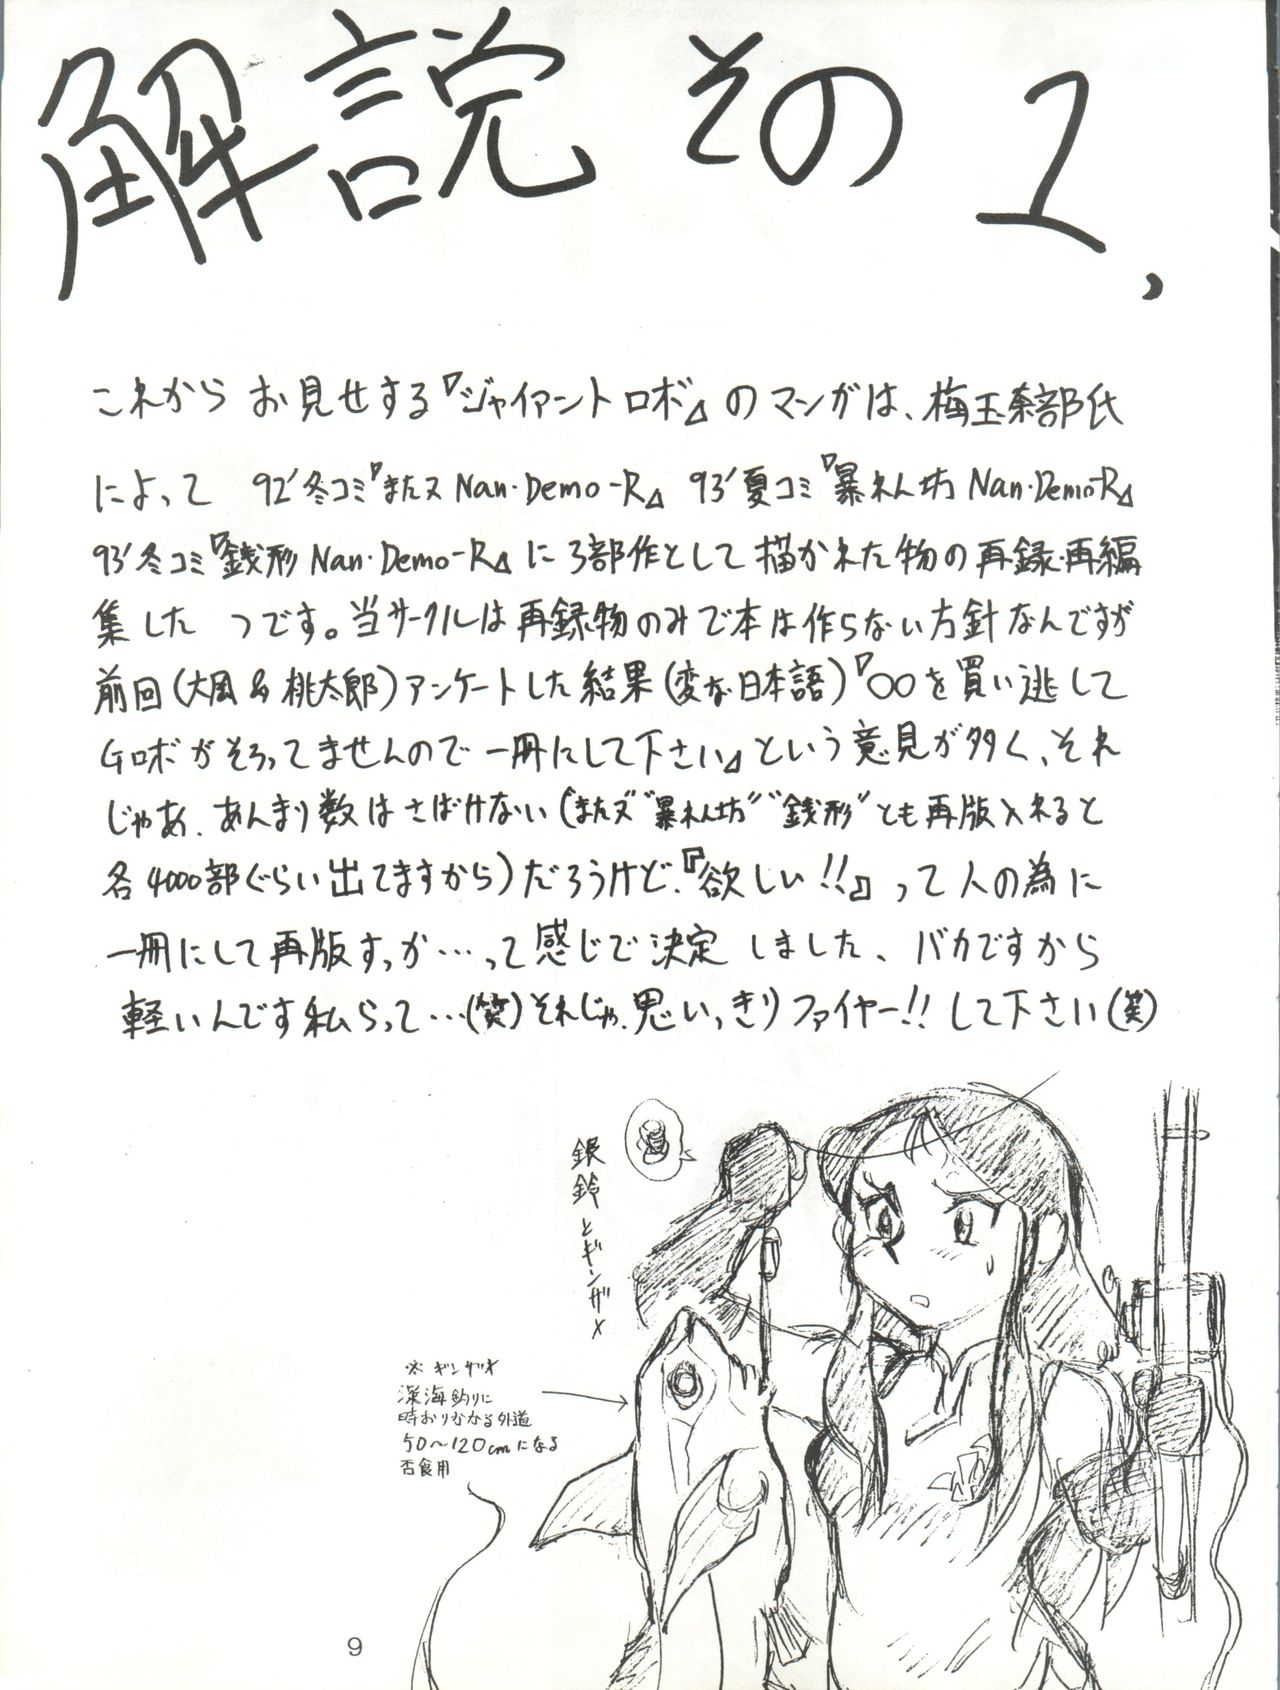 解説 その 1,
これから お見せする『ジャイアントロボ』のマンガは、梅玉奈部氏
によって 92'冬コミ『またヌ Nan・Demo-R』 93'夏コミ『暴れん坊 Nan・Demo-R』
93'冬コミ『銭形 Nan・Demo-R』に3部作として描かれた物の再録・再編
集した つです。当サークルは再録物のみで本は作らない方針なんですが
前回(大風&桃太郎)アンケートした結果(変な日本語)『○○を買い逃して
Gロボがそろってませんので一冊にして下さい』という意見が多く、それ
じゃあ、あんまり数はさばけない("またヌ" "暴れん坊" "銭形"とも再版入れると
各4000部ぐらい出てますから)だろうけど、『欲しい!!』って人の為に
一冊にして再版すっか…って感じで決定しました、バカですから
軽いんです私らって…(笑)それじゃ、思いっきりファイヤー!!して下さい(笑)
銀鈴とギンザメ
※ギンザメ
深海釣りに
時おりかかる外道
50〜120cmになる
否食用
9